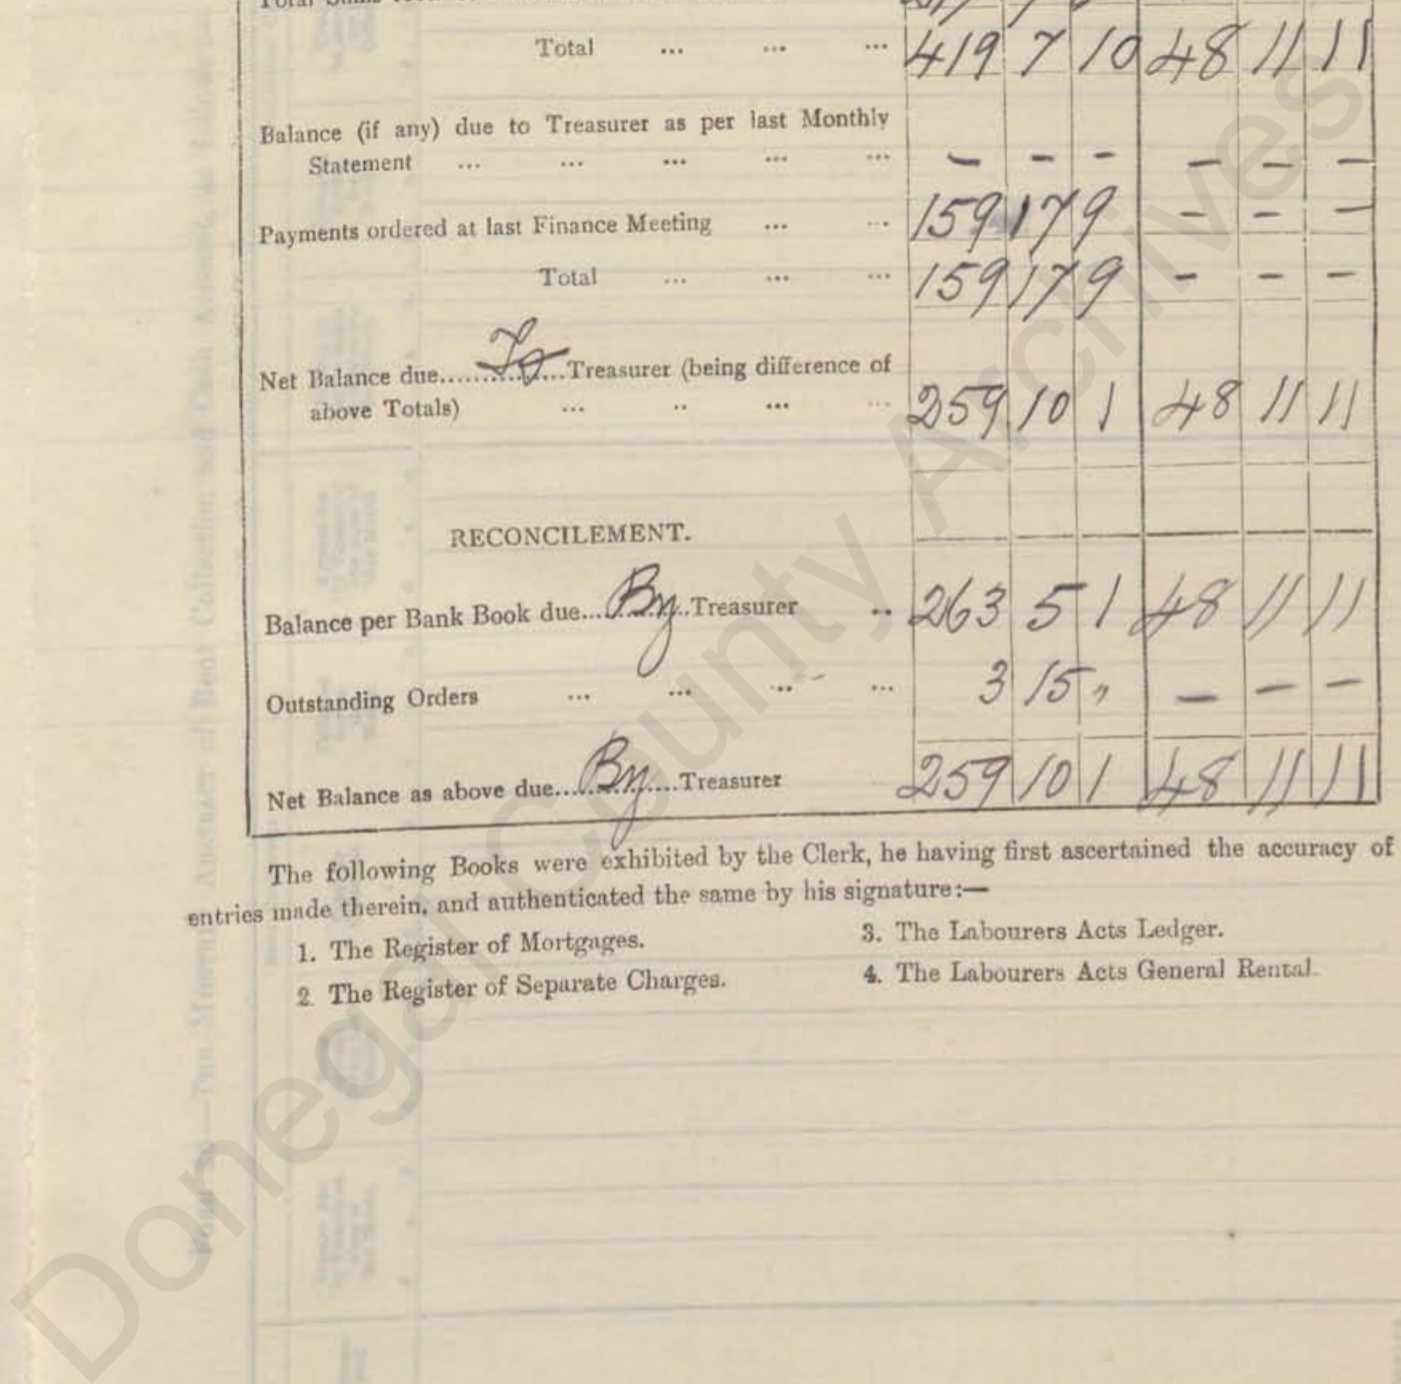 Total
Total ... ... ... 419 7 10 48 11 11
Balance (if any) due to Treasurer as per last Monthly
Statement ... ... ... ... ... – – – – – –
Payments ordered at last Finance Meeting ... ... 159 17 9 – – –
Total ... ... ... 159 17 9 – – –
Net Balance due.....To.....Treasurer (being difference of
above Totals) ... .. ... ... 259 10 1 48 11 11
RECONCILEMENT.
Balance per Bank Book due...By...Treasurer .. 263 5 1 48 11 11
Outstanding Orders ... ... ... ... 3 15 „ – – –
Net Balance as above due...By...Treasurer 259 10 1 48 11 11
The following Books were exhibited by the Clerk, he having first ascertained the accuracy of
entries made therein, and authenticated the same by his signature:—
1. The Register of Mortgages.
2. The Register of Separate Charges.
3. The Labourers Acts Ledger.
4. The Labourers Acts General Rental.
Donegal County Archives